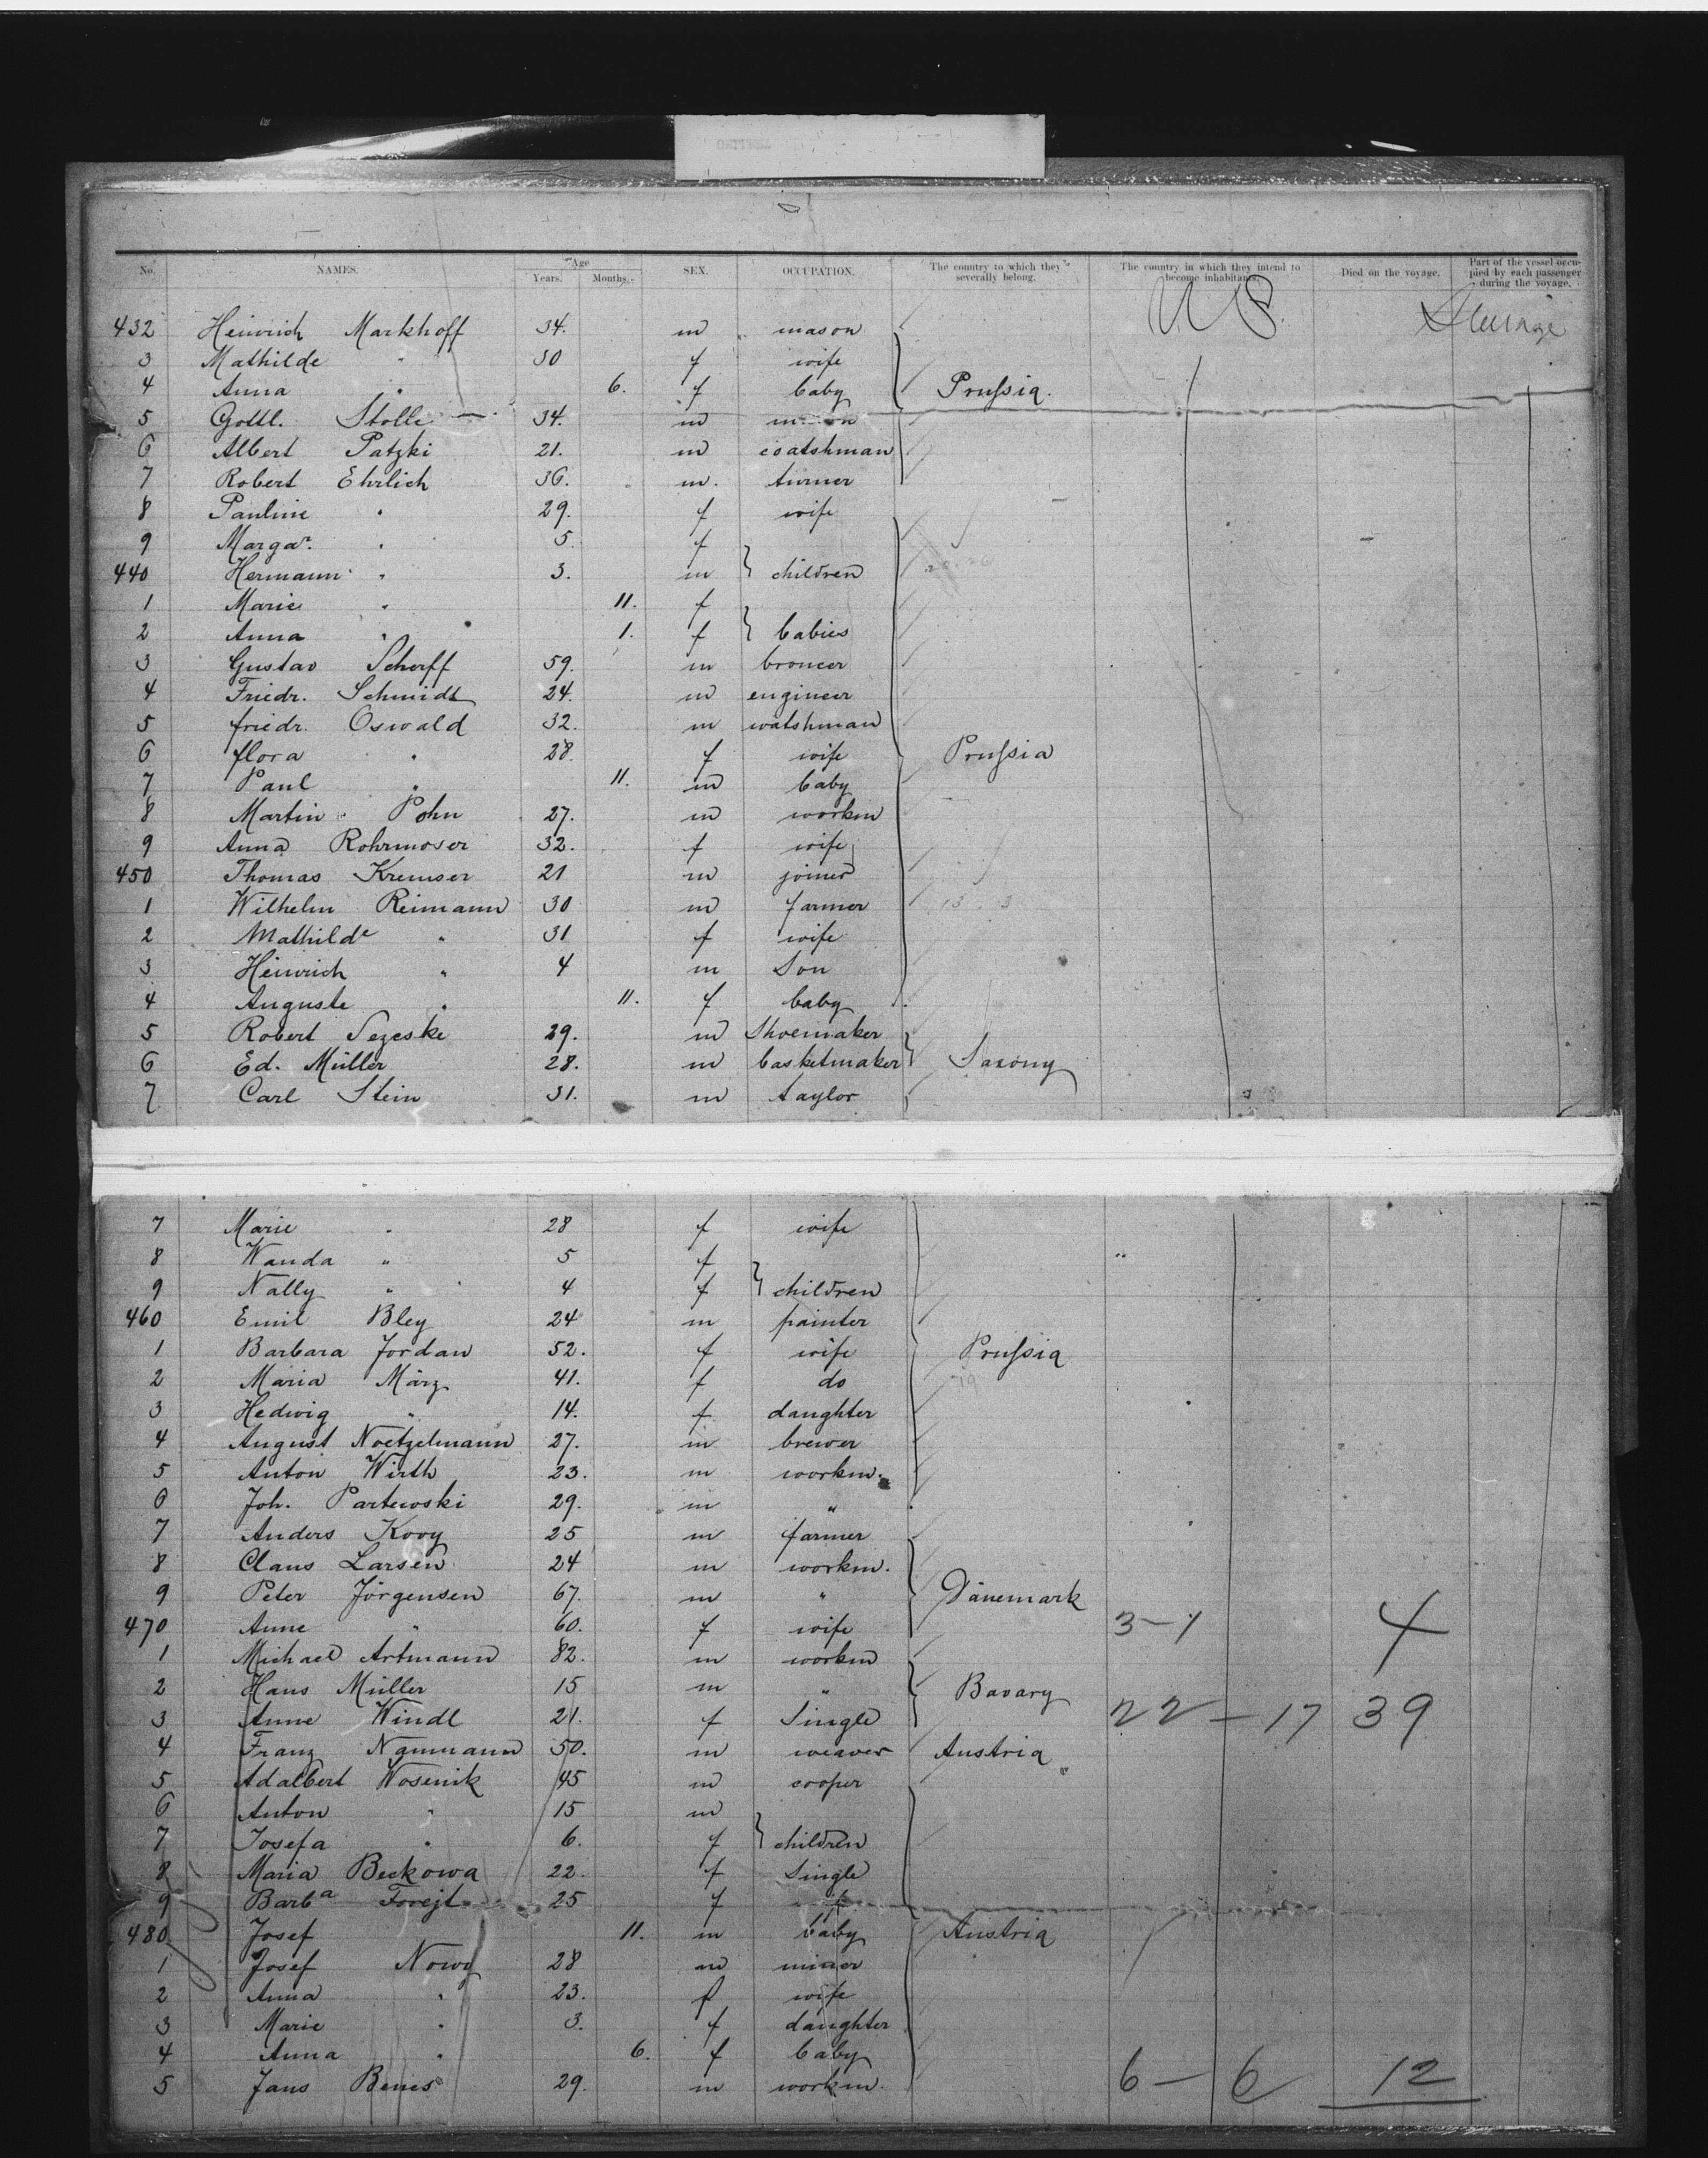 No. NAMES. Age Years. Months. SEX. OCCUPATION. The country to which they severally belong. The country in which they intend to become inhabitants. Died on the voyage. Part of the vessel occupied by each passenger during the voyage.
U.S. Steerage
432 Heinrich Markhoff 34. m mason
3 Mathilde " 30 f wife
4 Anna " 6. f baby Prussia.
5 Gottl. Stolle 34. m
6 Albert Patzki 21. m coatshman
7 Robert Ehrlich 36. m. turner
8 Pauline " 29. f wife
9 Margar. " 5. f
440 Hermann " 3. m } children
1 Marie " 11. f
2 Anna " 1. f } babies
3 Gustav Scherff 59. m broncer
4 Friedr. Schmidt 24. m engineer
5 friedr. Oswald 32. m watshman
6 flora " 28. f wife Prussia
7 Paul " 11. m baby
8 Martin Pohn 27. m workm
9 Anna Rohrmoser 32. f wife
450 Thomas Kremser 21 m joiner
1 Wilhelm Reimann 30 m farmer
2 Mathilde " 31 f wife
3 Heinrich " 4 m Son
4 Auguste " 11. f baby
5 Robert Sezeske 29. m Shoemaker
6 Ed. Müller 28. m basketmaker Saxony
7 Carl Stein 31. m taylor
7 Marie " 28 f wife
8 Wanda " 5 f
9 Nally " 4 f } children
460 Emil Bley 24 m painter
1 Barbara Jordan 52. f wife Prussia
2 Maria März 41. f do
3 Hedwig " 14. f daughter
4 August Noetzelmann 27. m brewer
5 Anton Wirth 23. m workm.
6 Joh. Partewski 29. m "
7 Anders Kooy 25 m farmer
8 Claus Larsen 24 m workm.
9 Peter Jörgensen 67. m " Dänemark
470 Anne " 60. f wife 3-1 4
1 Michael Artmann 82. m workm
2 Hans Müller 15 m " Bavary
3 Anne Windl 21. f Single 22-17 39
4 Franz Naumann 50. m weaver Austria
5 Adalbert Wosenik 45 m cooper
6 Anton " 15 m
7 Josefa " 6. f } children
8 Maria Beckowa 22. f Single
9 Barba Forejt 25 f
480 Josef 11. m baby Austria
1 Josef Nowy 28 m miner
2 Anna " 23. f wife
3 Marie " 3. f daughter
4 Anna " 6. f baby
5 Jans Benes 29. m workm. 6-6 12